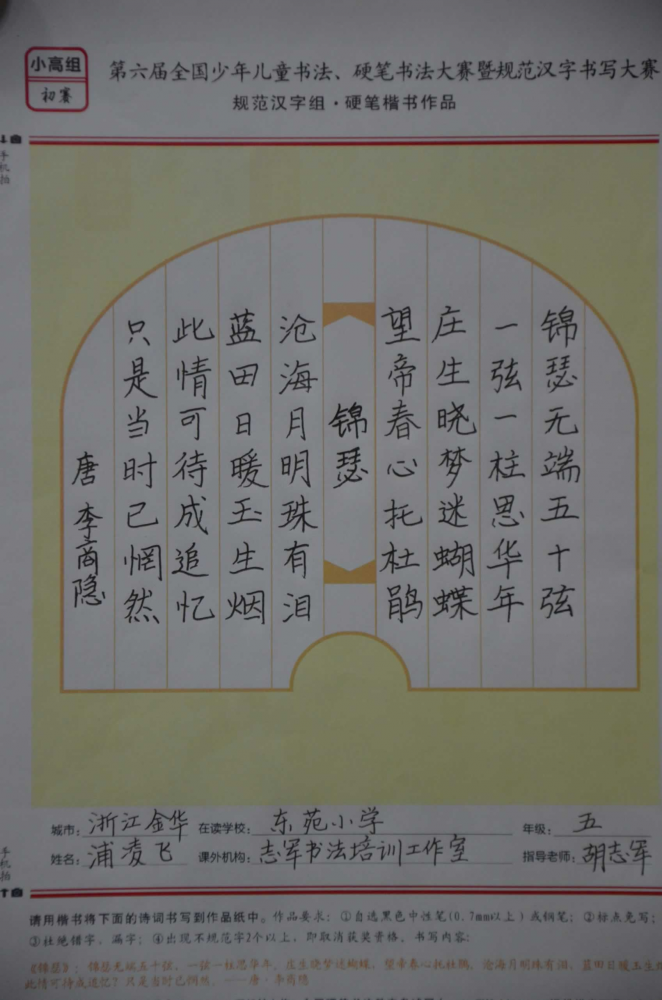 小高组
初赛
第六届全国少年儿童书法、硬笔书法大赛暨规范汉字书写大赛
规范汉字组·硬笔楷书作品
手机拍
锦瑟无端五十弦
一弦一柱思华年
庄生晓梦迷蝴蝶
望帝春心托杜鹃
锦瑟
沧海月明珠有泪
蓝田日暖玉生烟
此情可待成追忆
只是当时已惘然
唐 李商隐
城市：浙江金华 在读学校：东苑小学 年级：五
姓名：浦凌飞 课外机构：志军书法培训工作室 指导老师：胡志军
手机拍
请用楷书将下面的诗词书写到作品纸中。作品要求：①自选黑色中性笔(0.7mm以上)或钢笔；②标点免写；
③杜绝错字、漏字；④出现不规范字2个以上，即取消获奖资格。书写内容：
《锦瑟》：锦瑟无端五十弦，一弦一柱思华年。庄生晓梦迷蝴蝶，望帝春心托杜鹃。沧海月明珠有泪，蓝田日暖玉生烟
此情可待成追忆？只是当时已惘然。——唐·李商隐